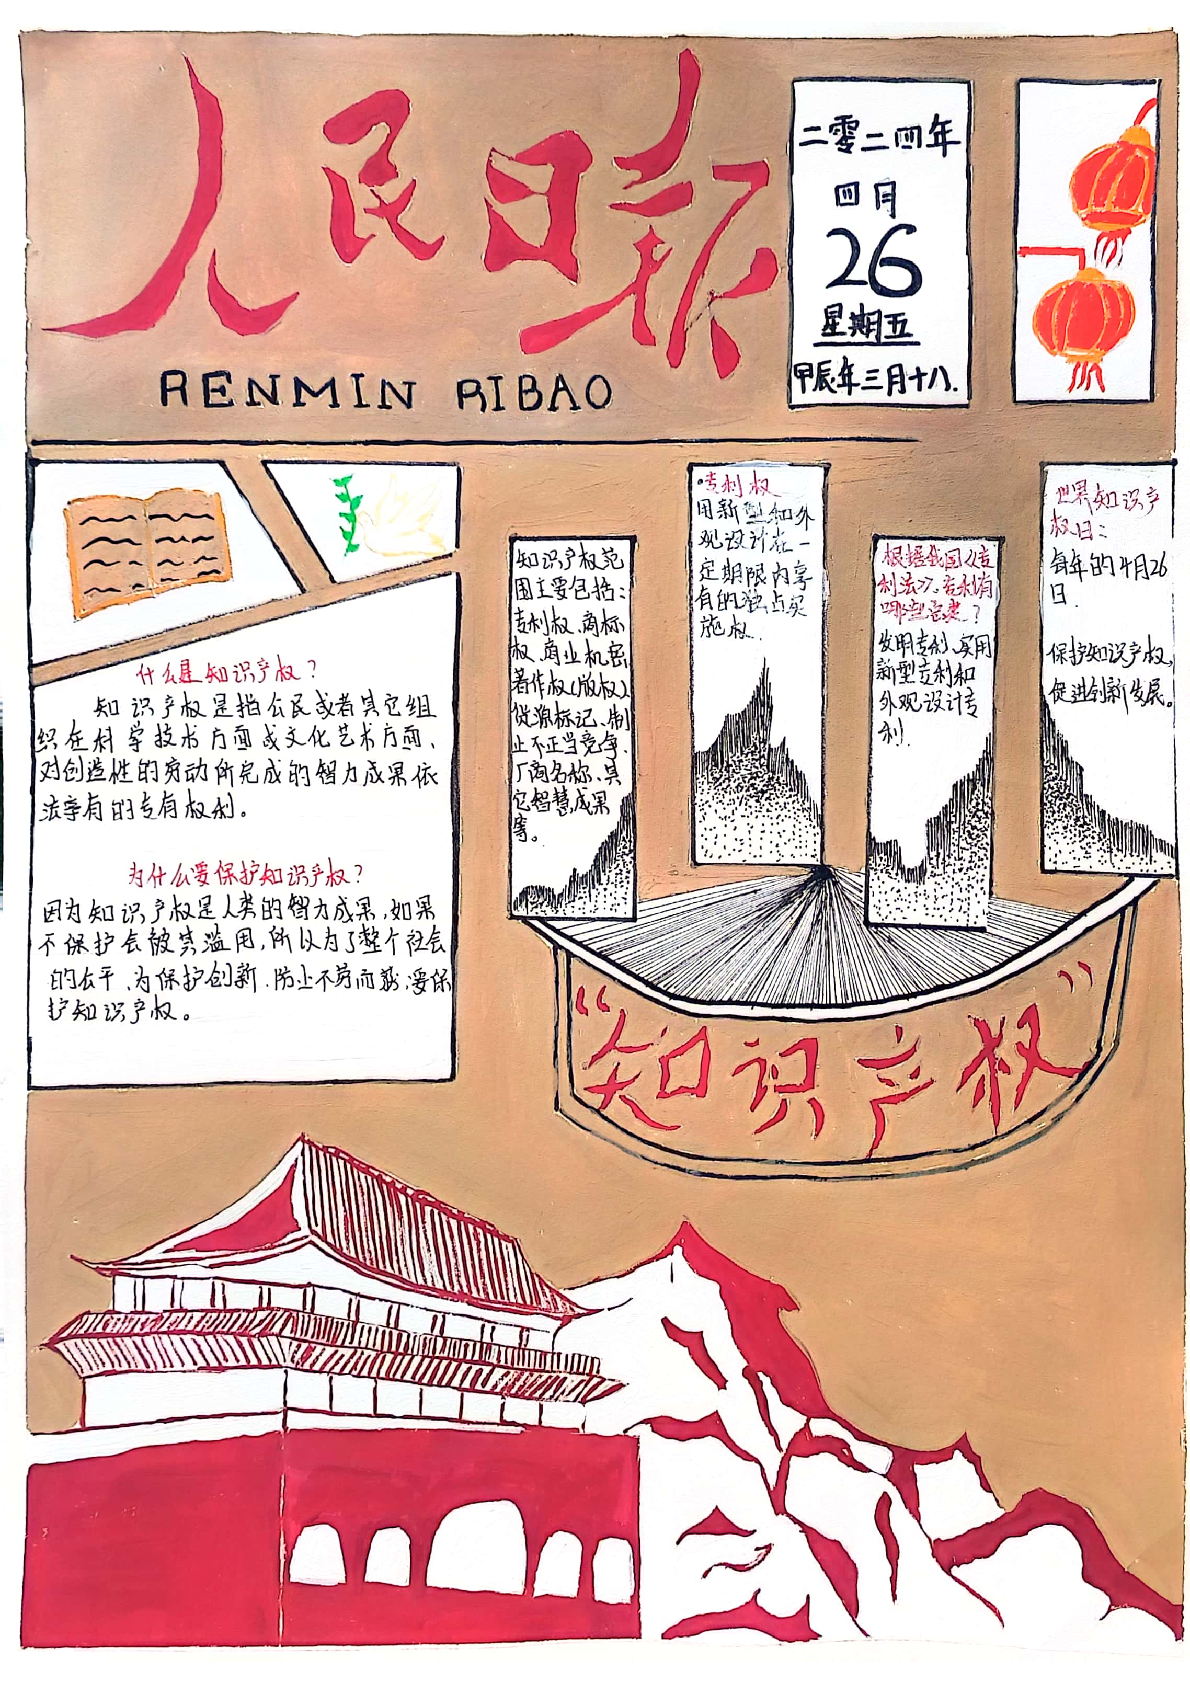 人民日报
RENMIN RIBAO
二零二四年
四月
26
星期五
甲辰年三月十八.
什么是知识产权？
知识产权是指公民或者其它组
织在科学技术方面或文化艺术方面、
对创造性的劳动所完成的智力成果依
法享有的专有权利。
为什么要保护知识产权？
因为知识产权是人类的智力成果,如果
不保护会被其滥用,所以为了整个社会
的公平、为保护创新、防止不劳而获,要保
护知识产权。
知识产权范
围主要包括：
专利权、商标
权、商业机密
著作权(版权)
货源标记、制
止不正当竞争、
厂商名称、其
它智慧成果
等。
·专利权
用新型和外
观设计在一
定期限内享
有的独占实
施权.
根据我国《专
利法》,专利有
哪些种类？
发明专利、实用
新型专利和
外观设计专
利.
世界知识产
权日：
每年的4月26
日.
保护知识产权,
促进创新发展。
“知识产权”